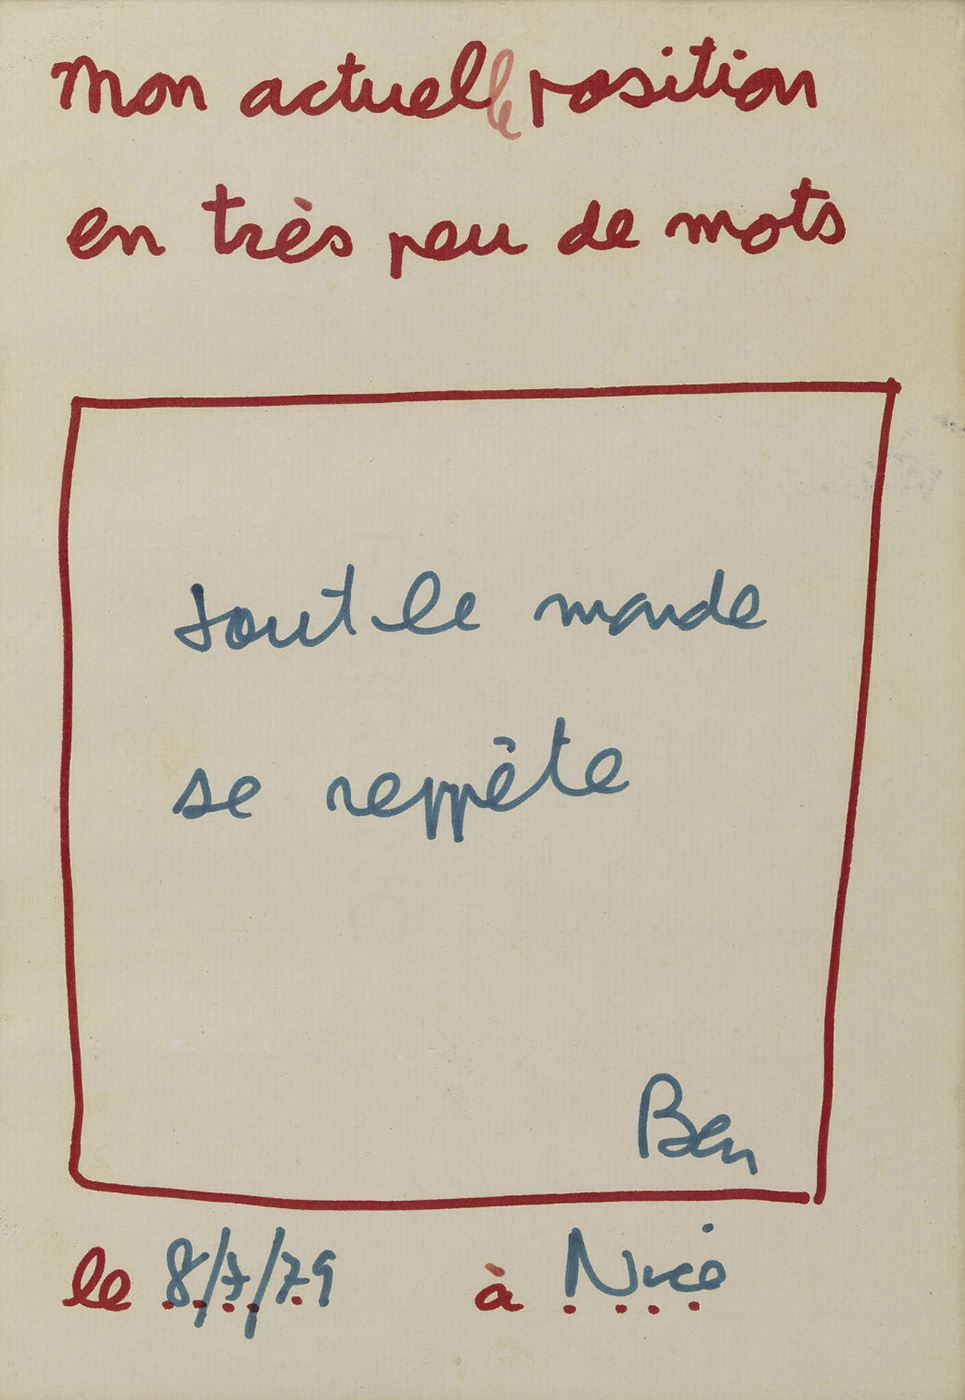 Mon actuelle position
en très peu de mots
tout le monde
se reppète
Ben
le 8/7/79 à Nice